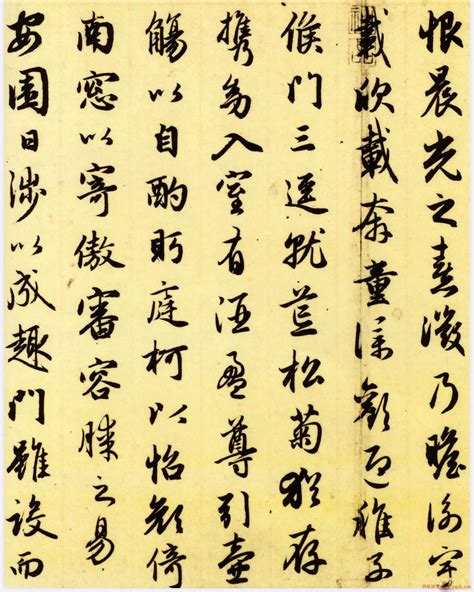 恨晨光之熹微乃瞻衡宇
載欣載奔童僕歡迎稚子
候門三逕就荒松菊猶存
携幼入室有酒盈尊引壺
觴以自酌眄庭柯以怡顏倚
南窓以寄傲審容膝之易
安園日涉以成趣門雖設而